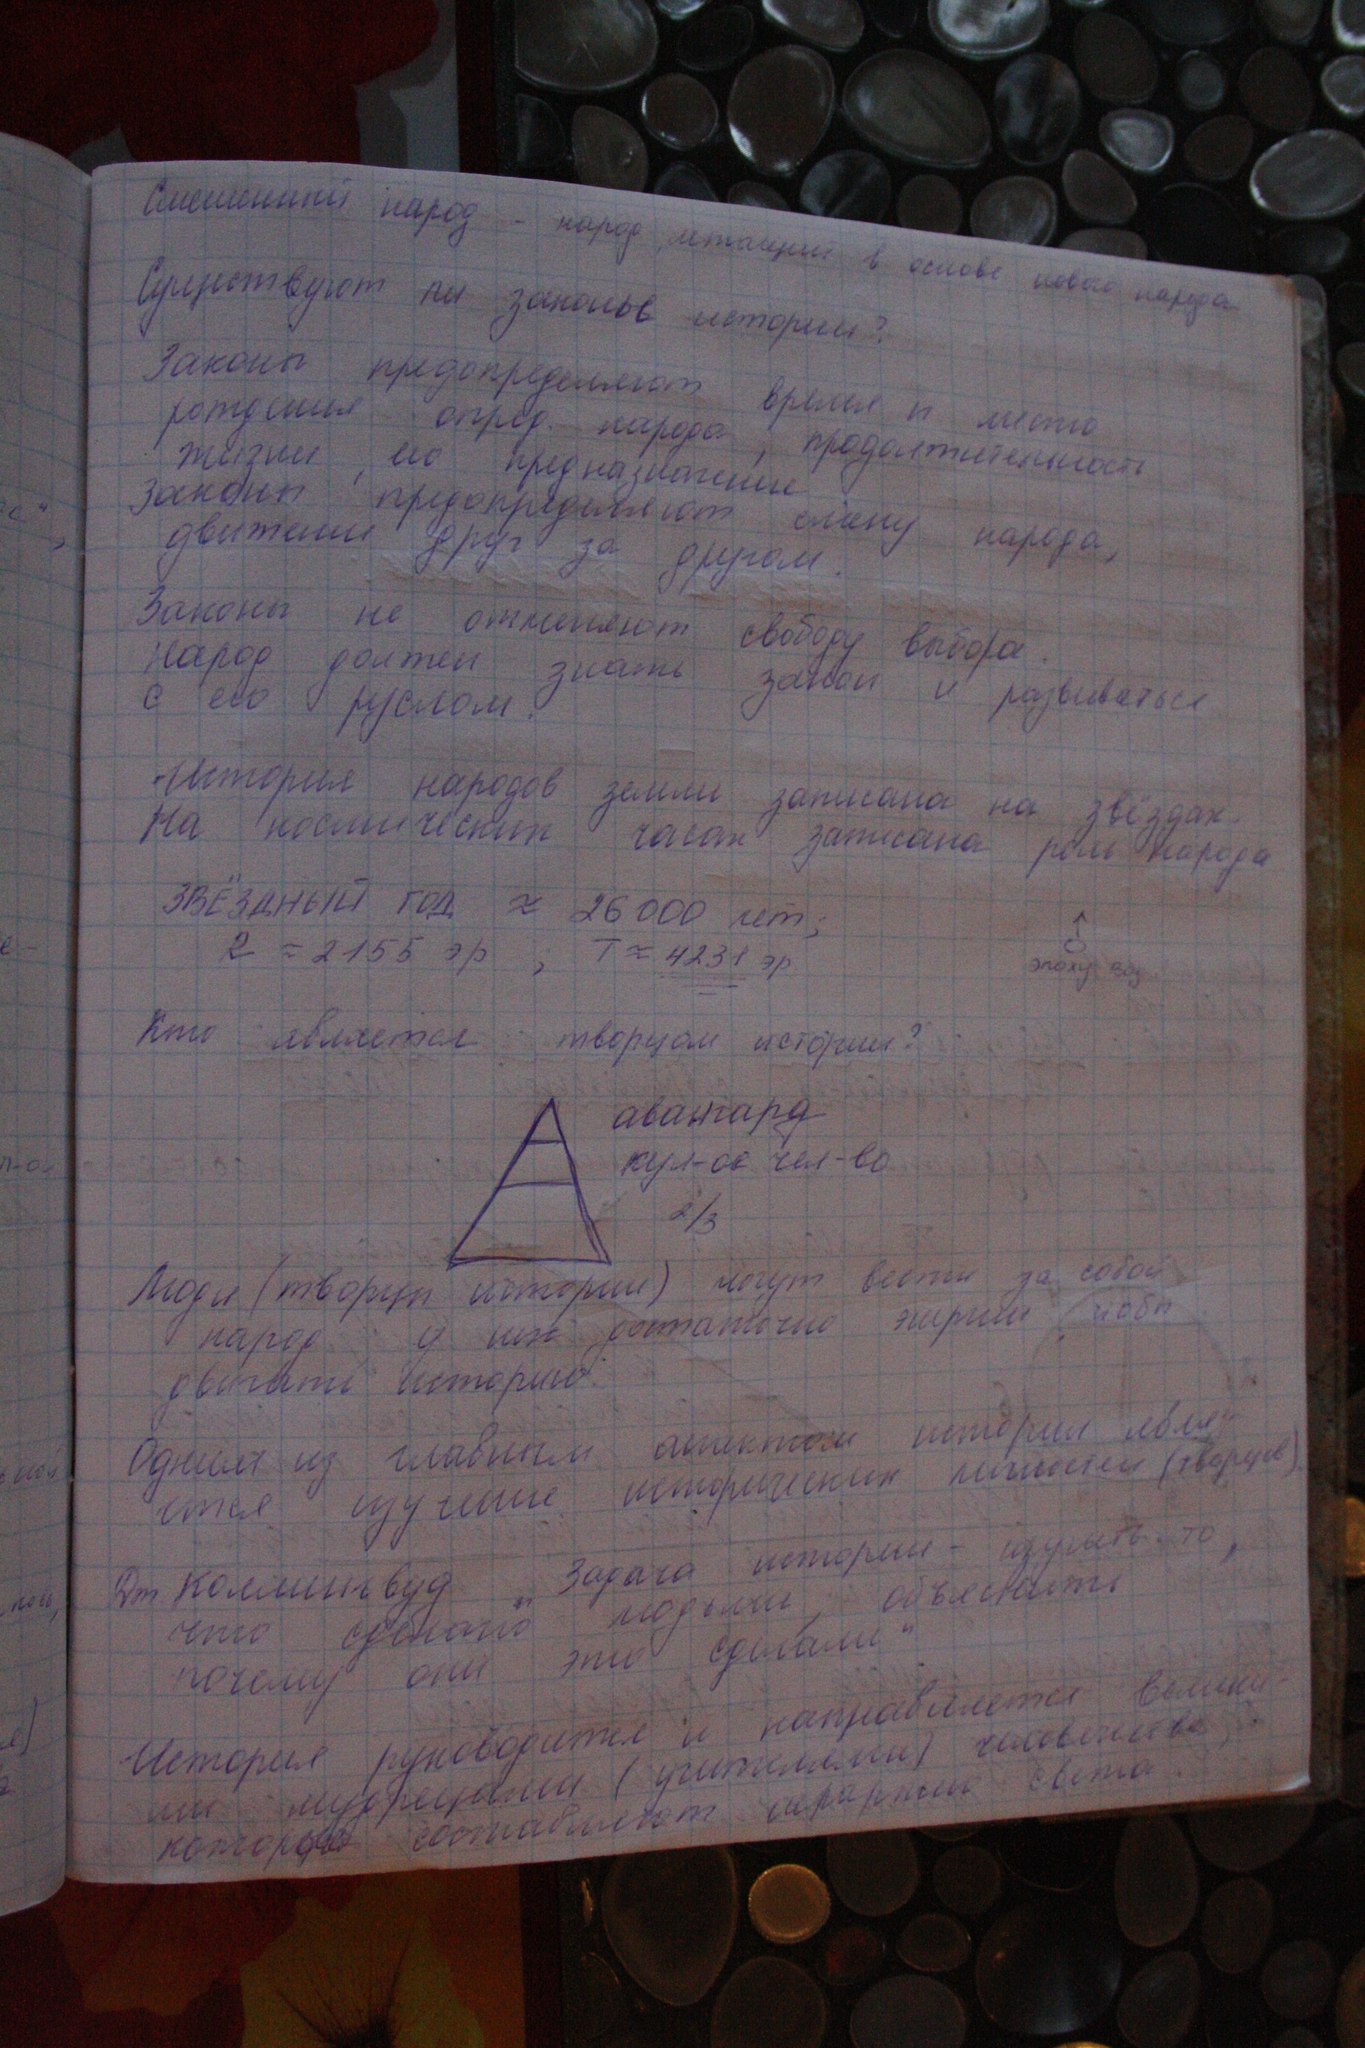 Смешенный народ - народ летащий в основе нового народа
Существуют ли законы истории?
Законы предопределяют время и место
рождения опред. народа, продолжительность
жизни, его предназначение
Законы предопределяют смену народа,
движение друг за другом.
Законы не отменяют свободу выбора.
Народ должен знать закон и развиваться
с его руслом.
История народов земли записана на звёздах.
На космических часах записана роль народа
ЗВЁЗДНЫЙ ГОД ≈ 26000 лет;
R ≈ 2155 эр ; T ≈ 4231 эр
эпоху воз
Кто является творцом истории?
авангард
кул-ое чел-во
2/3
Люди (творцы истории) могут вести за собой
народ у них достаточно энергии чтобы
двигать историю.
Одним из главным аспектом истории явля-
ется изучение исторических личностей (творцов).
Дж Коллингвуд Задача истории - изучить то,
что сделано людьми, объяснить
почему они это сделали"
История руководится и направляется велики-
ми мудрецами (учителями) человечества,
которые составляют иерархии света.